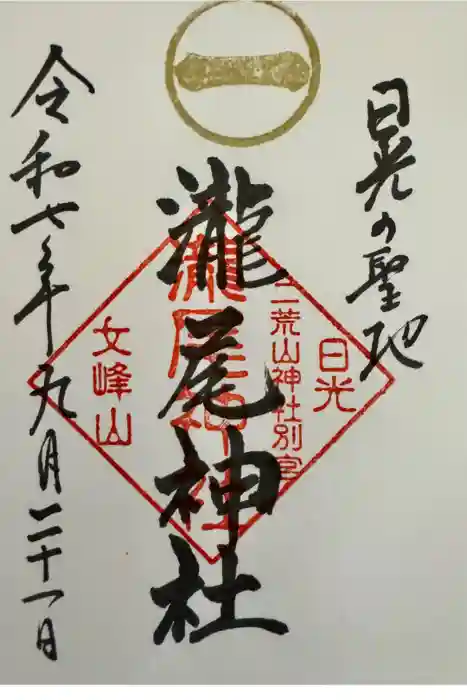 一
日光の聖地
瀧尾神社
日光
二荒山神社別宮
瀧尾神社
女峰山
令和七年九月二十一日